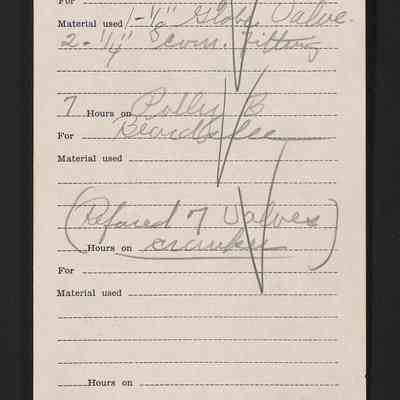 For
Material used 1-1/2" Globe Valve.
2-1/4" com. fitting
7 Hours on Polly B
For Beardslee
Material used
(Refaced 7 Valves
Hours on
For
Material used
Hours on